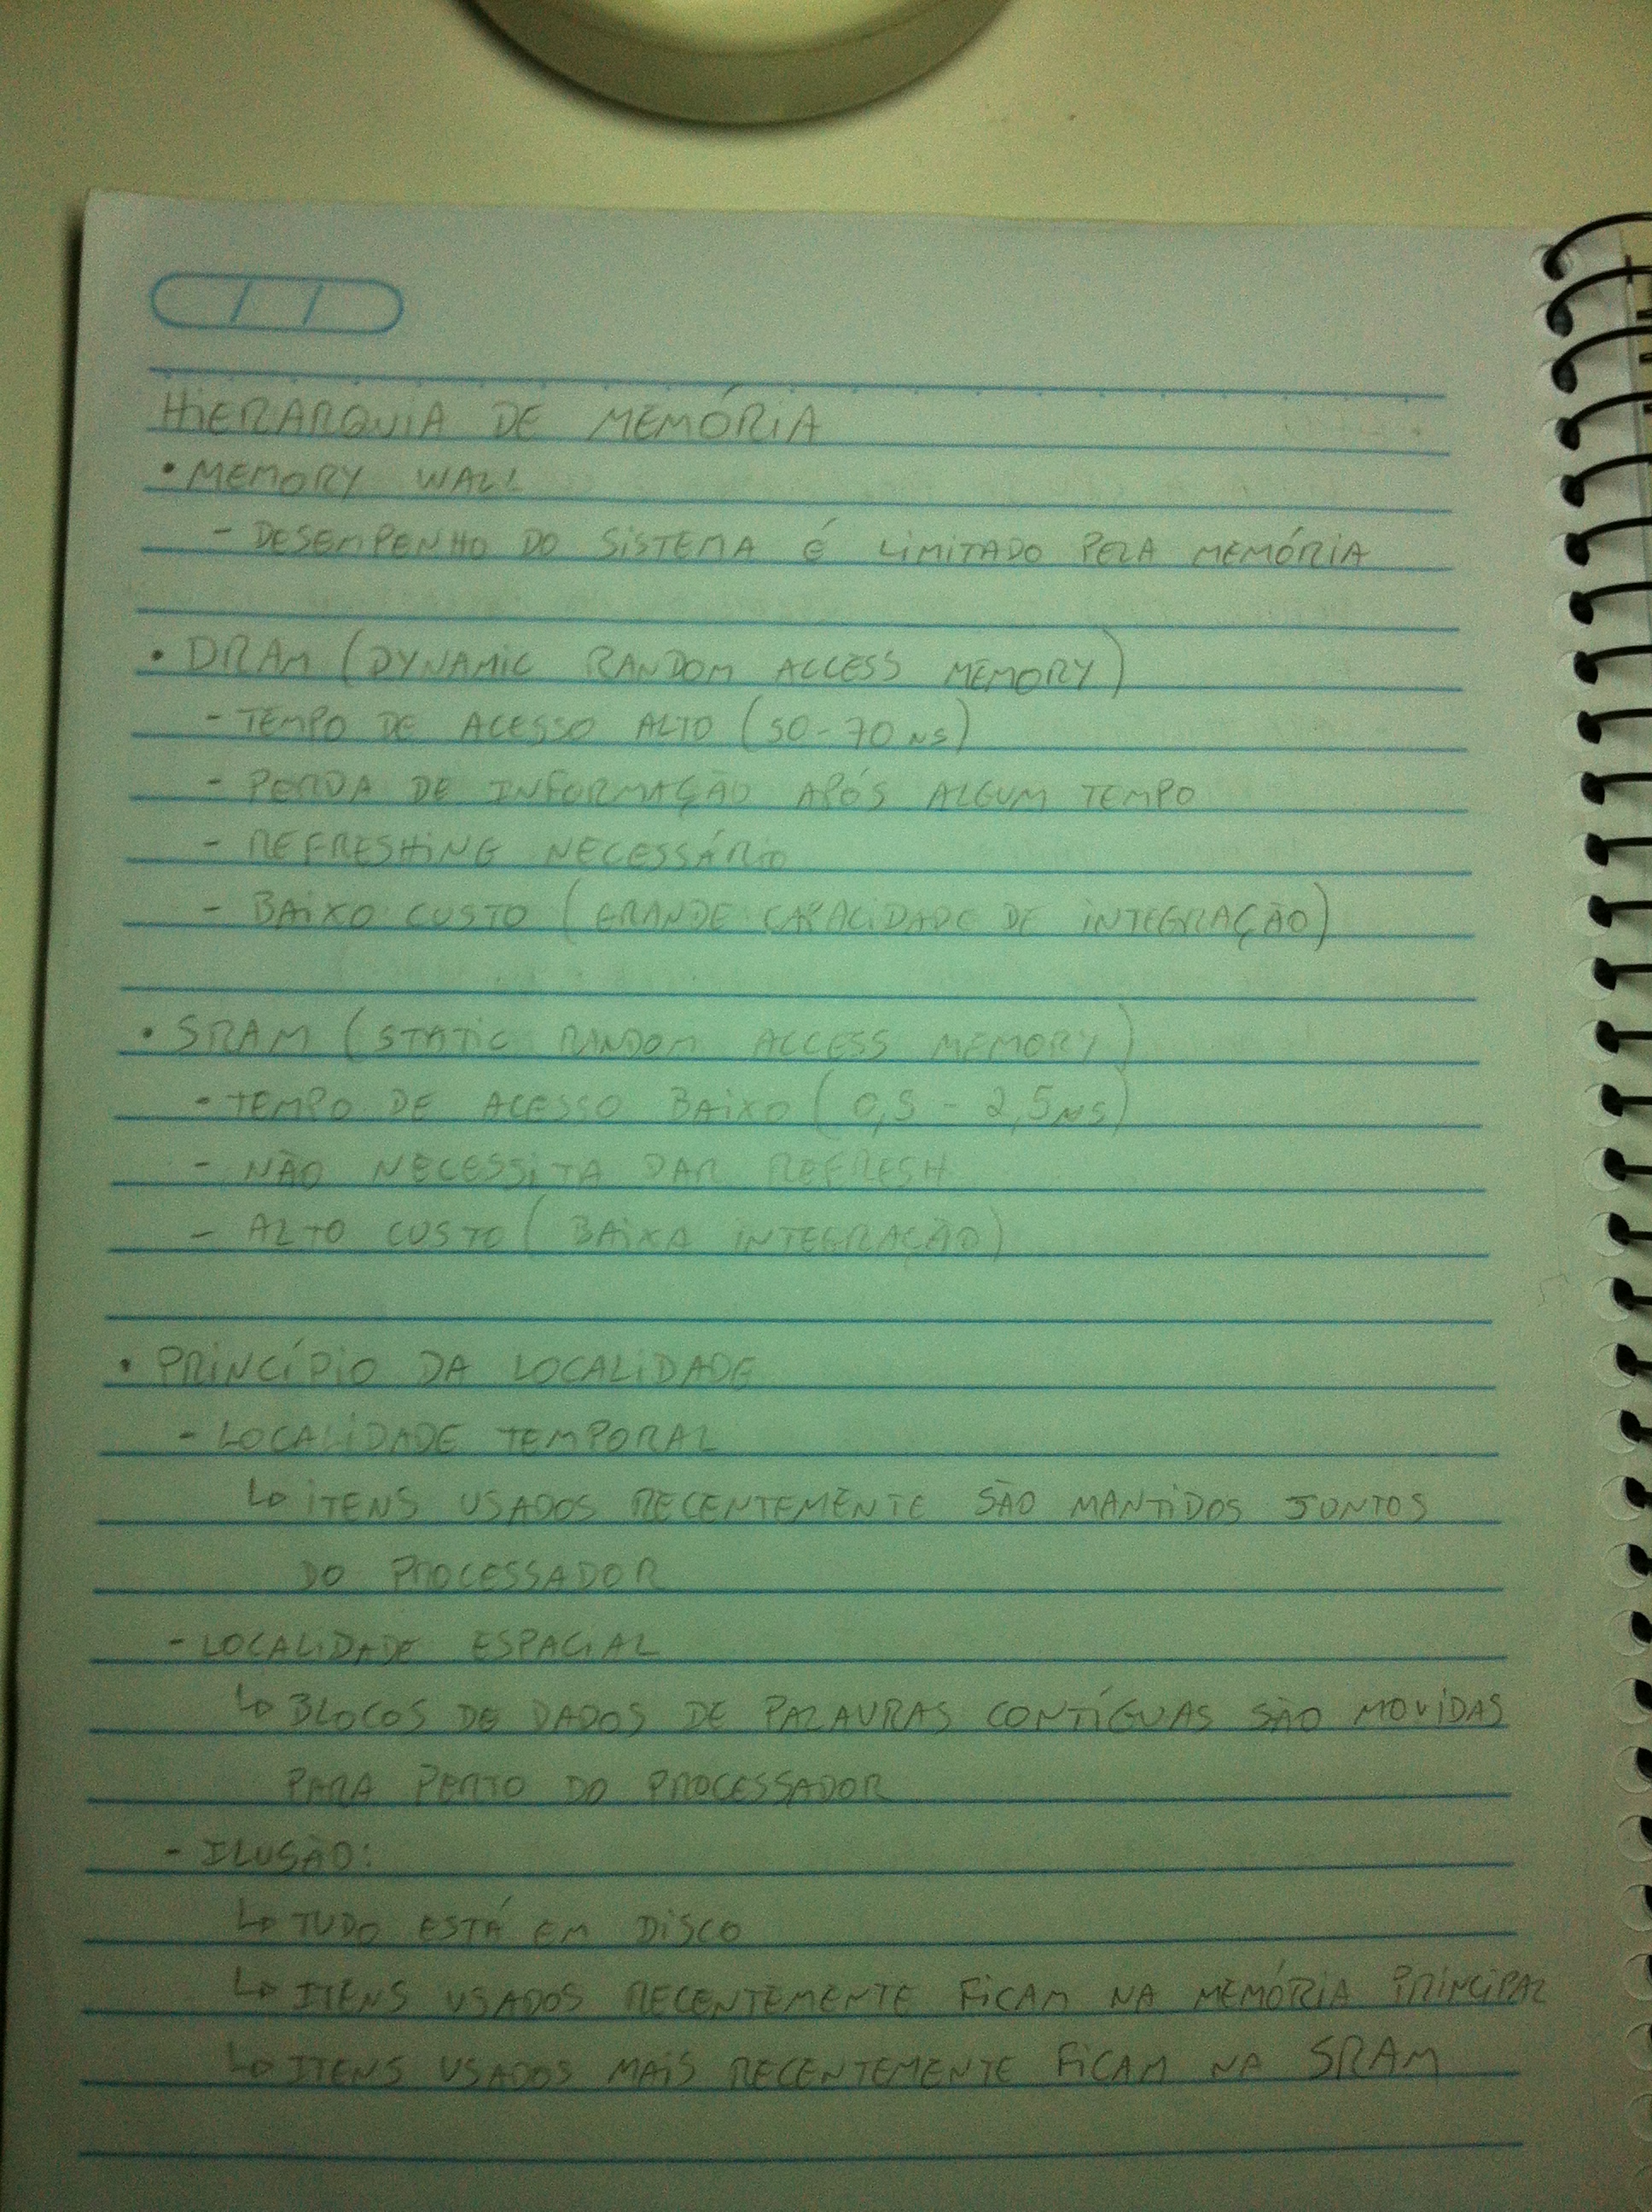 HIERARQUIA DE MEMÓRIA
• MEMORY WALL
- DESEMPENHO DO SISTEMA É LIMITADO PELA MEMÓRIA
• DRAM (DYNAMIC RANDOM ACCESS MEMORY)
- TEMPO DE ACESSO ALTO (50-70 ns)
- PERDA DE INFORMAÇÃO APÓS ALGUM TEMPO
- REFRESHING NECESSÁRIO
- BAIXO CUSTO (GRANDE CAPACIDADE DE INTEGRAÇÃO)
• SRAM (STATIC RANDOM ACCESS MEMORY)
- TEMPO DE ACESSO BAIXO (0,5 - 2,5 ns)
- NÃO NECESSITA DAR REFRESH
- ALTO CUSTO (BAIXA INTEGRAÇÃO)
• PRINCÍPIO DA LOCALIDADE
- LOCALIDADE TEMPORAL
↳ ITENS USADOS RECENTEMENTE SÃO MANTIDOS JUNTOS
DO PROCESSADOR
- LOCALIDADE ESPACIAL
↳ BLOCOS DE DADOS DE PALAVRAS CONTÍGUAS SÃO MOVIDAS
PARA PERTO DO PROCESSADOR
- ILUSÃO:
↳ TUDO ESTÁ EM DISCO
↳ ITENS USADOS RECENTEMENTE FICAM NA MEMÓRIA PRINCIPAL
↳ ITENS USADOS MAIS RECENTEMENTE FICAM NA SRAM